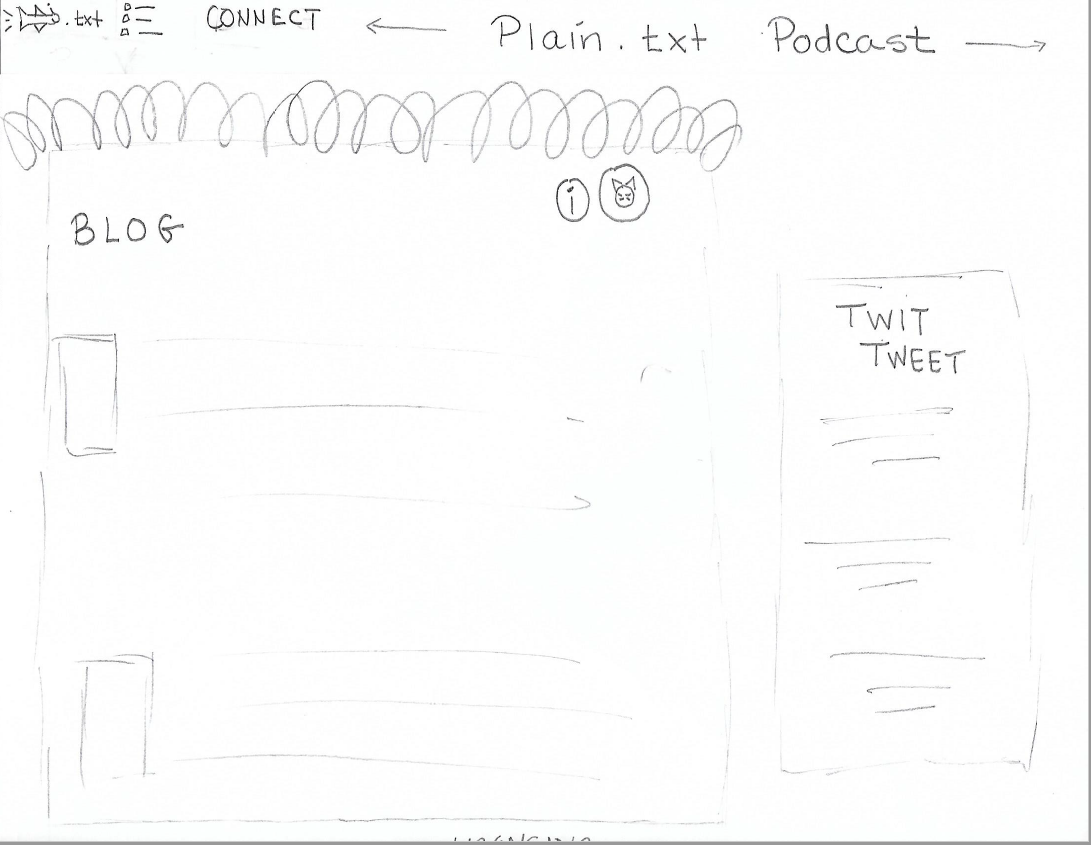 .txt CONNECT ← Plain.txt Podcast →
i
BLOG
TWIT
TWEET